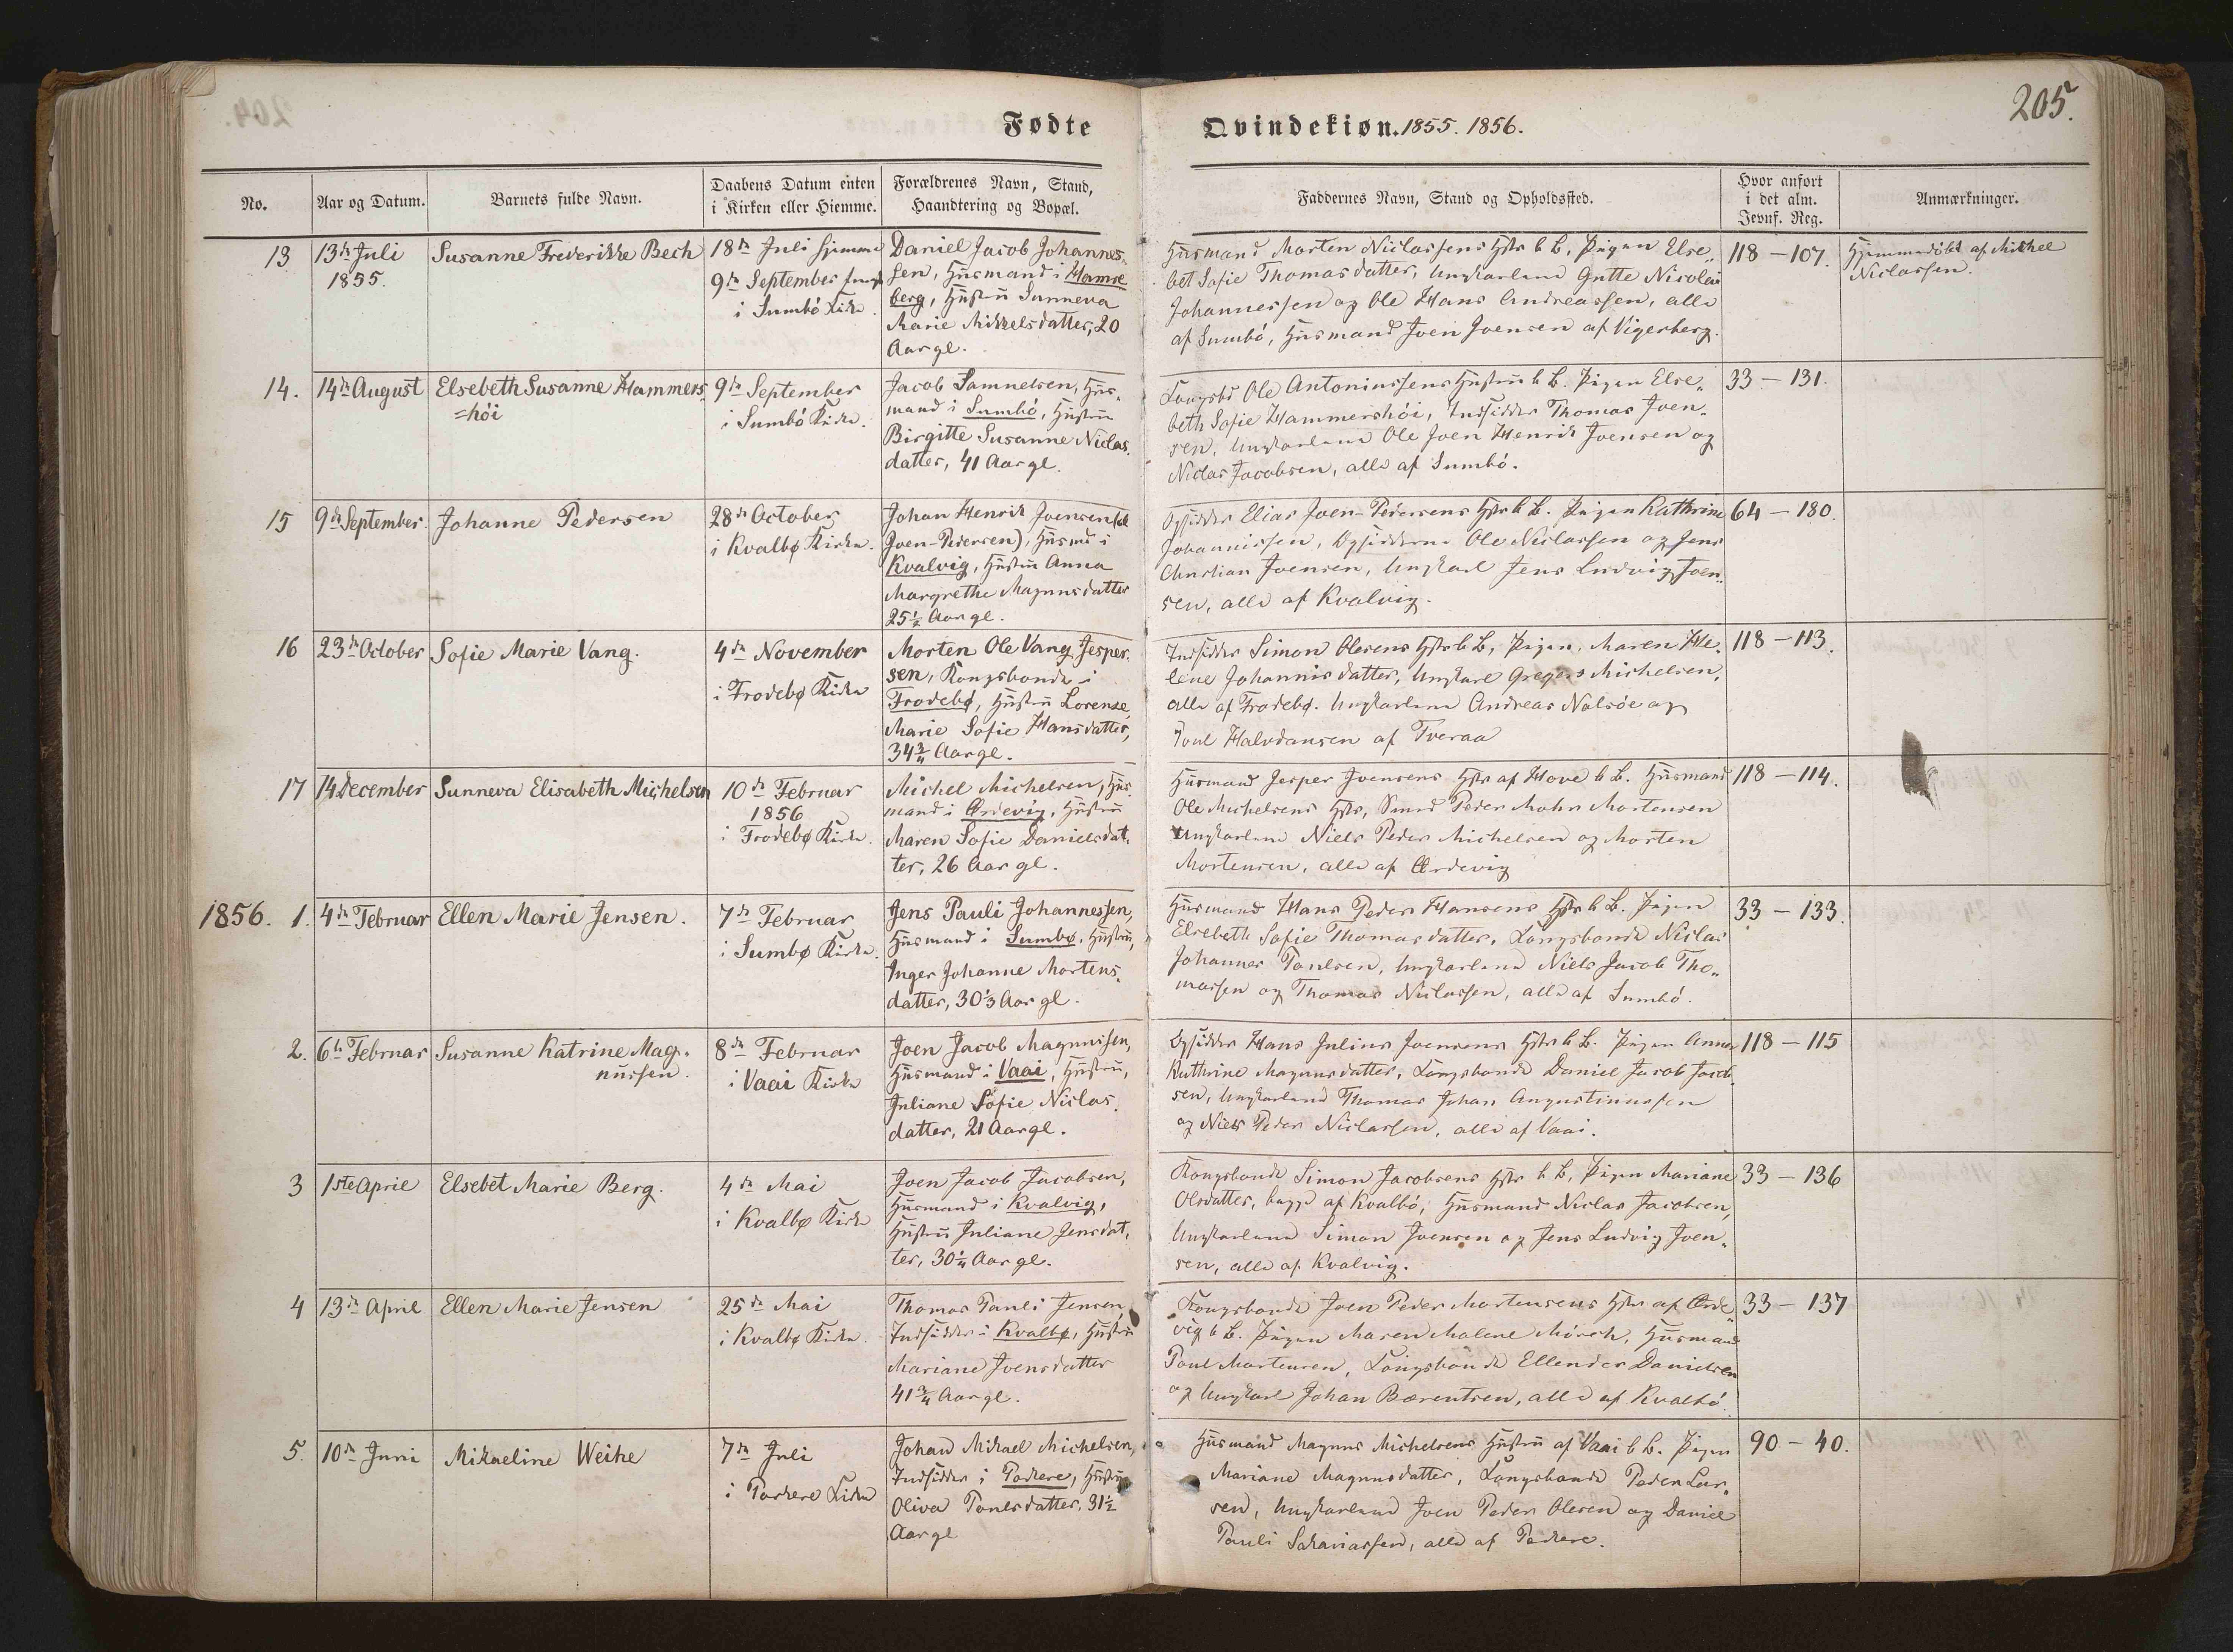 205.
Fødte
Qvindekiøn. 1855. 1856.
No.
Aar og Datum.
Barnets fulde Navn.
Daabens Datum enten
i Kirken eller Hiemme.
Forældrenes Navn, Stand,
Haandtering og Bopæl.
Faddernes Navn, Stand og Opholdssted.
Hvor anført
i det alm.
Jevnf. Reg.
Anmærkninger.
13
13de Juli
1855.
Susanne Frederikke Bech
18de Juli hjemme
9de September
i Sumbö Kirke.
Daniel Jacob Johannes-
sen, Huusmand i Hamre
berg, Hustru Sunneva
Marie Mikkelsdatter, 20
Aar gl.
Huusmand Morten Niclassens Hstr b. B., Pigen Else-
bet Sofie Thomasdatter, Ungkarlene Gutte Nicolai
Johannessen og Ole Hans Andreassen, alle
af Sumbö, Huusmand Joen Joensen af Vigerberg.
118 – 107.
Hjemmedöbt af Mikkel
Niclassen.
14.
14de August
Elsebeth Susanne Hammers-
=höi
9de September
i Sumbö Kirke.
Jacob Samuelsen, Huus-
mand i Sumbö, Hustru
Birgitte Susanne Niclas-
datter, 41 Aar gl.
Kongsbd Ole Antoniussens Hustru b. B. Pigen Else-
beth Sofie Hammershöi, Indsidder Thomas Joen-
sen, Ungkarlene Ole Joen Henrik Joensen og
Niclas Jacobsen, alle af Sumbö.
33 – 131.
15
9de September.
Johanne Pedersen
28de October
i Kvalbø Kirke.
Johan Henrik Joensen
Joen-Pedersen), Huusmd i
Kvalvig, Hustru Anna
Margrethe Magnusdatter
25½ Aar gl.
Opsidder Elias Joen-Pedersens Hstr b. B. Pigen Kathrine
Johannissen, Opsidderne Ole Niclassen og Jens
Christian Joensen, Ungkarl Jens Ludvig Joen-
sen, alle af Kvalvig.
64 – 180.
16
23de October
Sofie Marie Vang.
4de November
i Frodebø Kirke
Morten Ole Vang Jesper-
sen, Kongsbonde i
Frodebø, Hustru Lorense
Marie Sofie Hansdatter,
34¾ Aar gl.
Indsidder Simon Olesens Hstr b. B., Pigen, Maren He-
lene Johannisdatter, Ungkarl Gregers Michelsen,
alle af Frodebø. Ungkarlene Andreas Nolsöe og
Poul Halvdansen af Tveraa
118 – 113.
17
14 December
Sunneva Elisabeth Michelsen
10de Februar
1856
i Frodebø Kirke.
Michel Michelsen, Huus-
mand i Ørdevig, Hustru
Maren Sofie Danielsdat-
ter, 26 Aar gl.
Huusmand Jesper Joensens Hstr af Hove b. B. Huusmand
Ole Michelsens Hstr, Smed Peder Mohr Mortensen
Ungkarlene Niels Peder Michelsen og Morten
Mortensen, alle af Ørdevig
118 – 114.
1856. 1.
4de Februar
Ellen Marie Jensen.
7de Februar
i Sumbø Kirke.
Jens Pauli Johannessen,
Huusmand i Sumbø, Hustru,
Inger Johanne Mortens-
datter, 30⅓ Aar gl.
Huusmand Hans Peder Hansens Hstr b. B. Pigen
Elsebeth Sofie Thomasdatter, Kongsbonde Niclas
Johannes Poulsen, Ungkarlene Niels Jacob Tho-
massen og Thomas Niclassen, alle af Sumbö.
33 – 133.
2.
6te Februar
Susanne Katrine Mag-
nussen.
8de Februar
i Vaai Kirke
Joen Jacob Magnussen,
Huusmand i Vaai, Hustru,
Juliane Sofie Niclas-
datter, 21 Aar gl.
Opsidder Hans Julius Joensens Hstr b. B. Pigen Anna
Kathrine Magnusdatter, Kongsbonde Daniel Jacob Jacob-
sen, Ungkarlene Thomas Johan Augustinussen
og Niels Peder Niclassen, alle af Vaai.
118 – 115
3
1ste April
Elsebet Marie Berg.
4de Mai
i Kvalbø Kirke
Joen Jacob Jacobsen,
Huusmand i Kvalvig,
Hustru Juliane Jensdat-
ter, 30¼ Aar gl.
Kongsbonde Simon Jacobsens Hstr b. B., Pigen Mariane
Olsdatter, begge af Kvalbö, Huusmand Niclas Jacobsen,
Ungkarlene Simon Joensen og Jens Ludvig Joen-
sen, alle af Kvalvig.
33 – 136
4
13de April
Ellen Marie Jensen
25de Mai
i Kvalbø Kirke.
Thomas Pauli Jensen,
Indsidder i Kvalbø, Hustru
Mariane Joensdatter
41¾ Aar gl.
Kongsbonde Joen Peder Mortensens Hstr af Ørde-
vig b. B. Pigen Maren Malene Mörch, Huusmand
Poul Mortensen, Kongsbonde Ellendor Danielsen
og Ungkarl Johan Bærentsen, alle af Kvalbö.
33 – 137
5.
10de Juni
Mikaeline Weihe
7de Juli
i Porkere Kirke
Johan Mikael Michelsen,
Indsidder i Porkere, Hustru
Oliva Poulsdatter, 31½
Aar gl
Huusmand Magnus Michelsens Hustru af Vaai b. B. Pigen
Mariane Magnusdatter, Kongsbonde Peder Lar-
sen, Ungkarlene Joen Peder Olesen og Daniel
Pauli Sakariassen, alle af Porkere.
90 – 40.